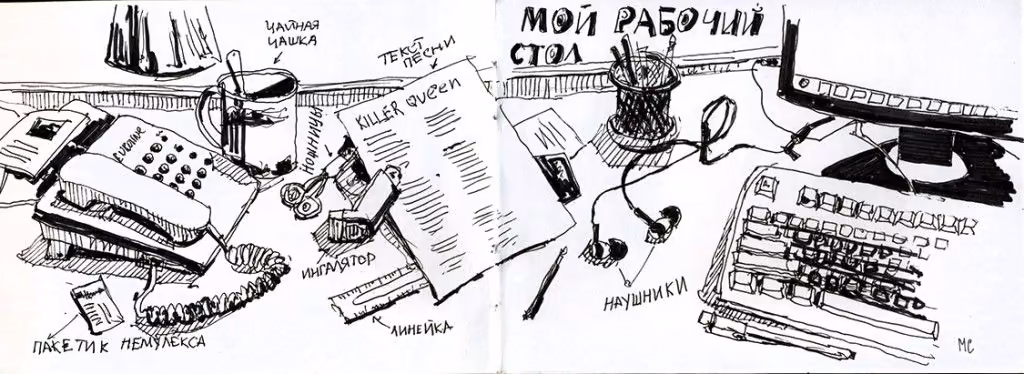 МОЙ РАБОЧИЙ
СТОЛ
ЧАЙНАЯ
ЧАШКА
ТЕКСТ
ПЕСНИ
KILLER QUEEN
НОЖНИЦЫ
ИНГАЛЯТОР
ЛИНЕЙКА
НАУШНИКИ
ПАКЕТИК НЕМУЛЕКСА
МС